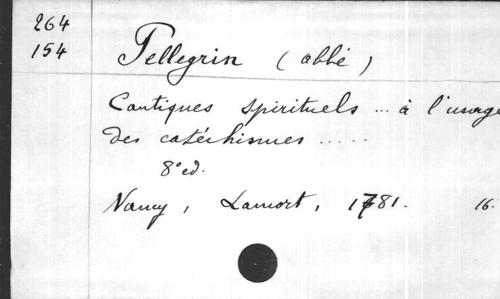 264
154
Pellegrin (abbé)
Cantiques spirituels ... à l'usage
des catéchismes .....
8° ed.
Nancy, Lamort, 1781. 16.